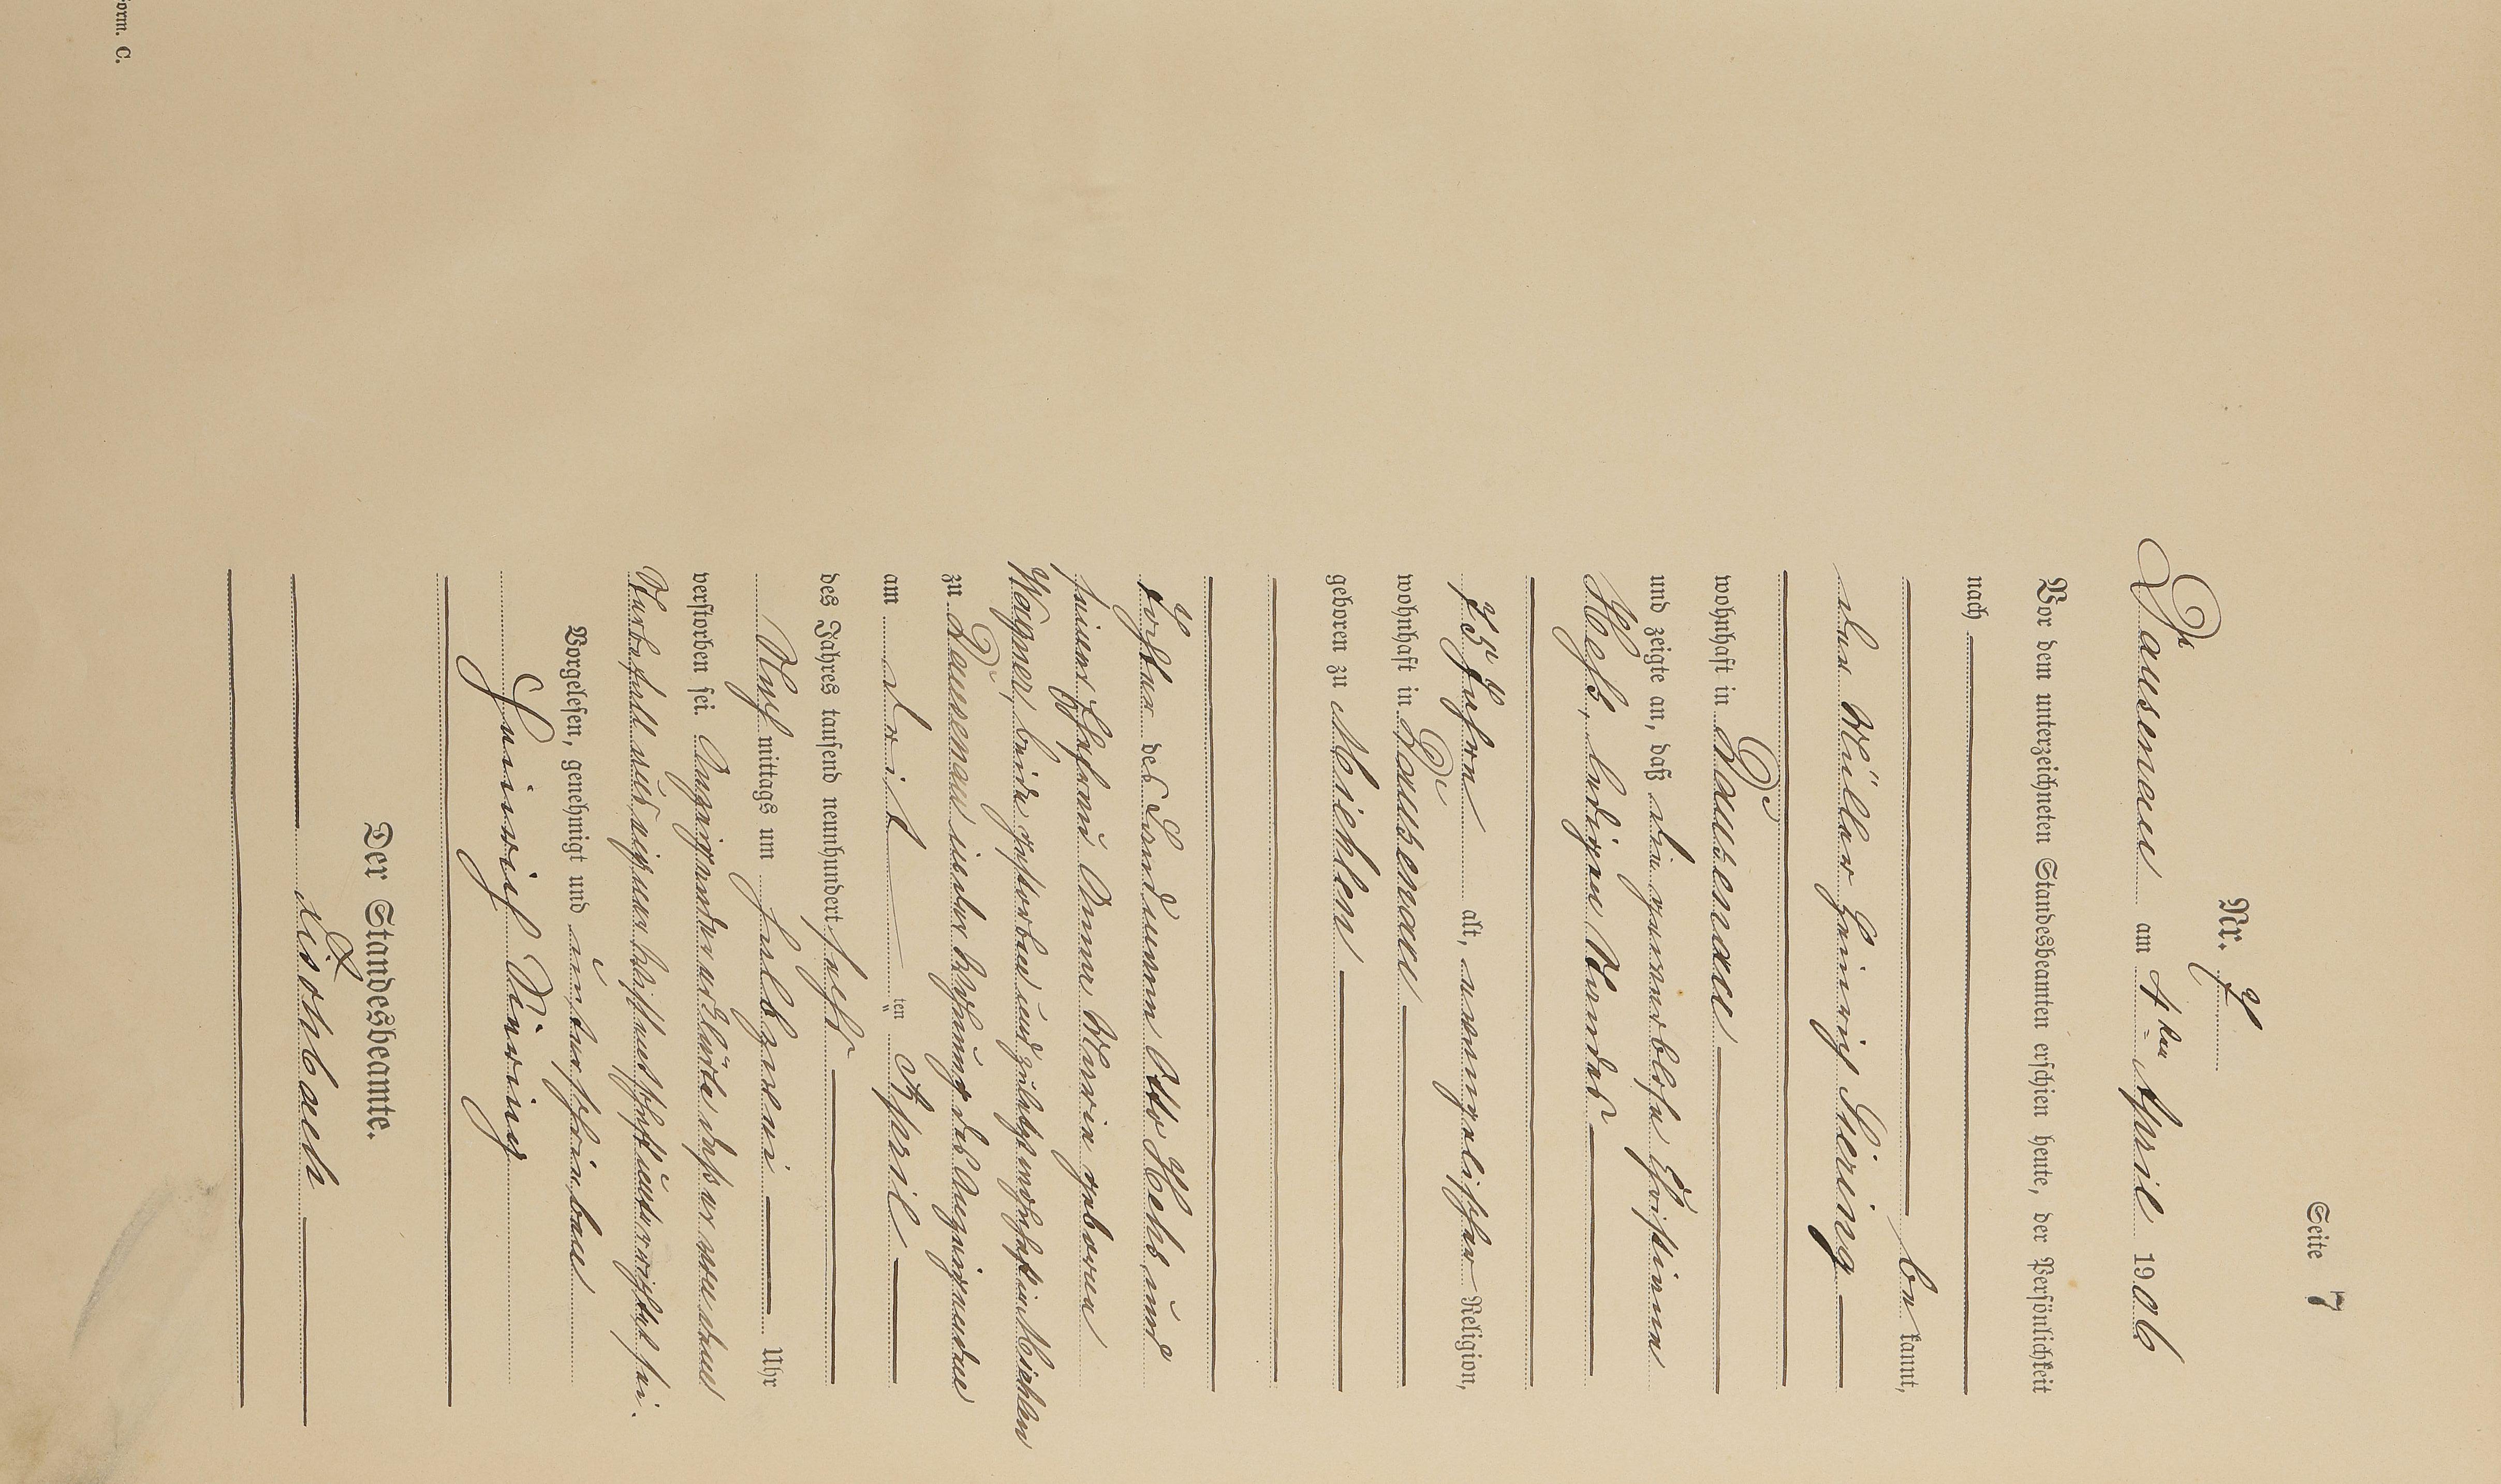 Seite 7
Nr. 7
Dausenau am 4ten April 1906
Vor dem unterzeichneten Standesbeamten erschien heute, der Persönlichkeit
nach
be kannt,
der Müller Heinrich
wohnhaft in Dausenau
und zeigte an, daß die gewerblose Christiana
Hehs, ledigen Standes
75 Jahre alt, evangelischer Religion,
wohnhaft in Dausenau
geboren zu Miehlen
Tochter des Landmann Otto Hehs und
seiner Ehefrau Anna Maria geborene
Wagner, beide gestorben und zuletzt wohnhaft in Miehlen
zu Dausenau in der Wohnung des Anzeigenden
am dritten April
des Jahres tausend neunhundert sechs
Nach mittags um halb zwei Uhr
verstorben sei. Anzeigender erklärte, daß er von dem
Sterbefall aus eigener Wissenschaft unterrichtet sei.
Vorgelesen, genehmigt und unterschrieben
Heinrich
Der Standesbeamte.
Linkbach
Form. C.